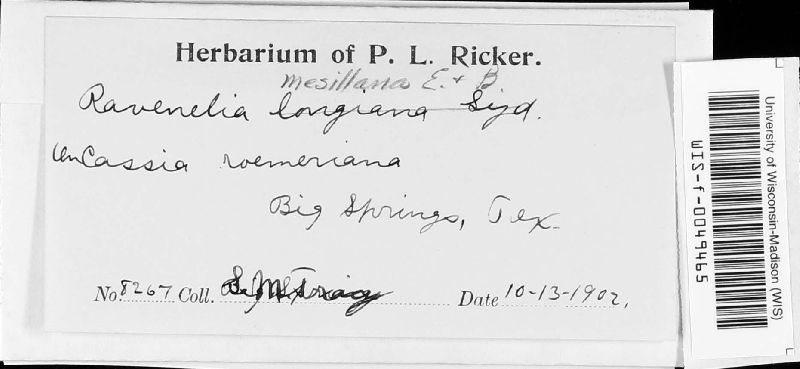 Herbarium of P. L. Ricker.
mesillana E. + B
Ravenelia longiana Syd.
on Cassia roemeriana
Big Springs, Tex.
No. 8267 Coll. S. M. Tracy Date 10-13-1902.
University of Wisconsin-Madison (WIS)
WIS-f-0049465